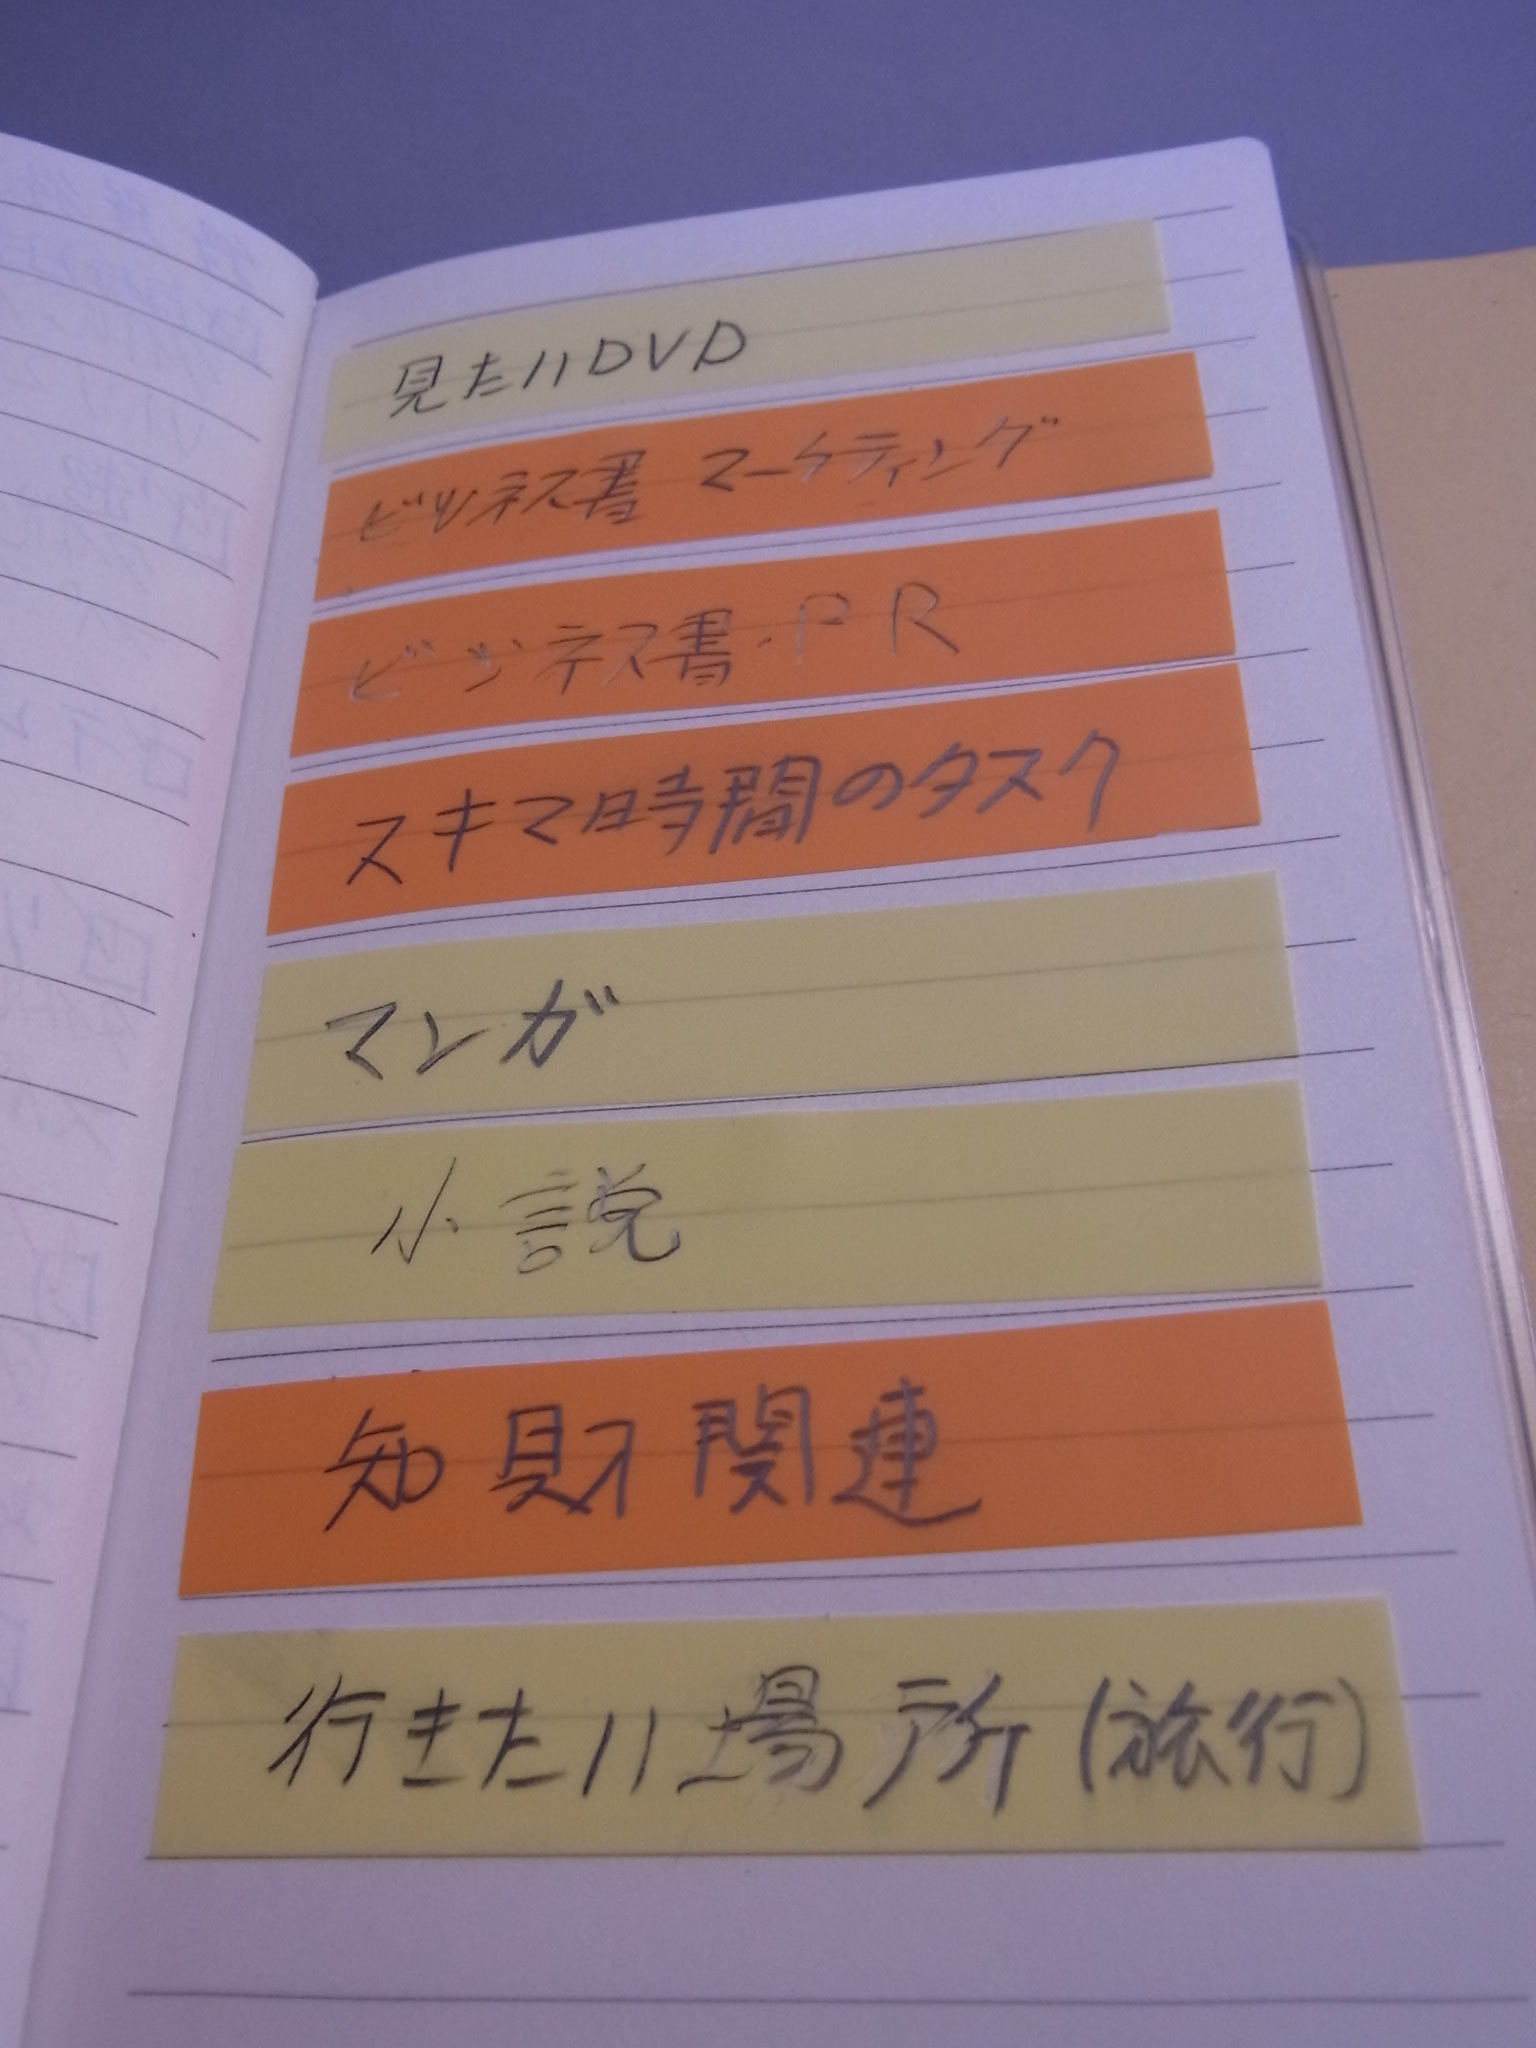 見たいDVD
ビジネス書 マーケティング
ビジネス書・PR
スキマ時間のタスク
マンガ
小説
知財関連
行きたい場所(旅行)